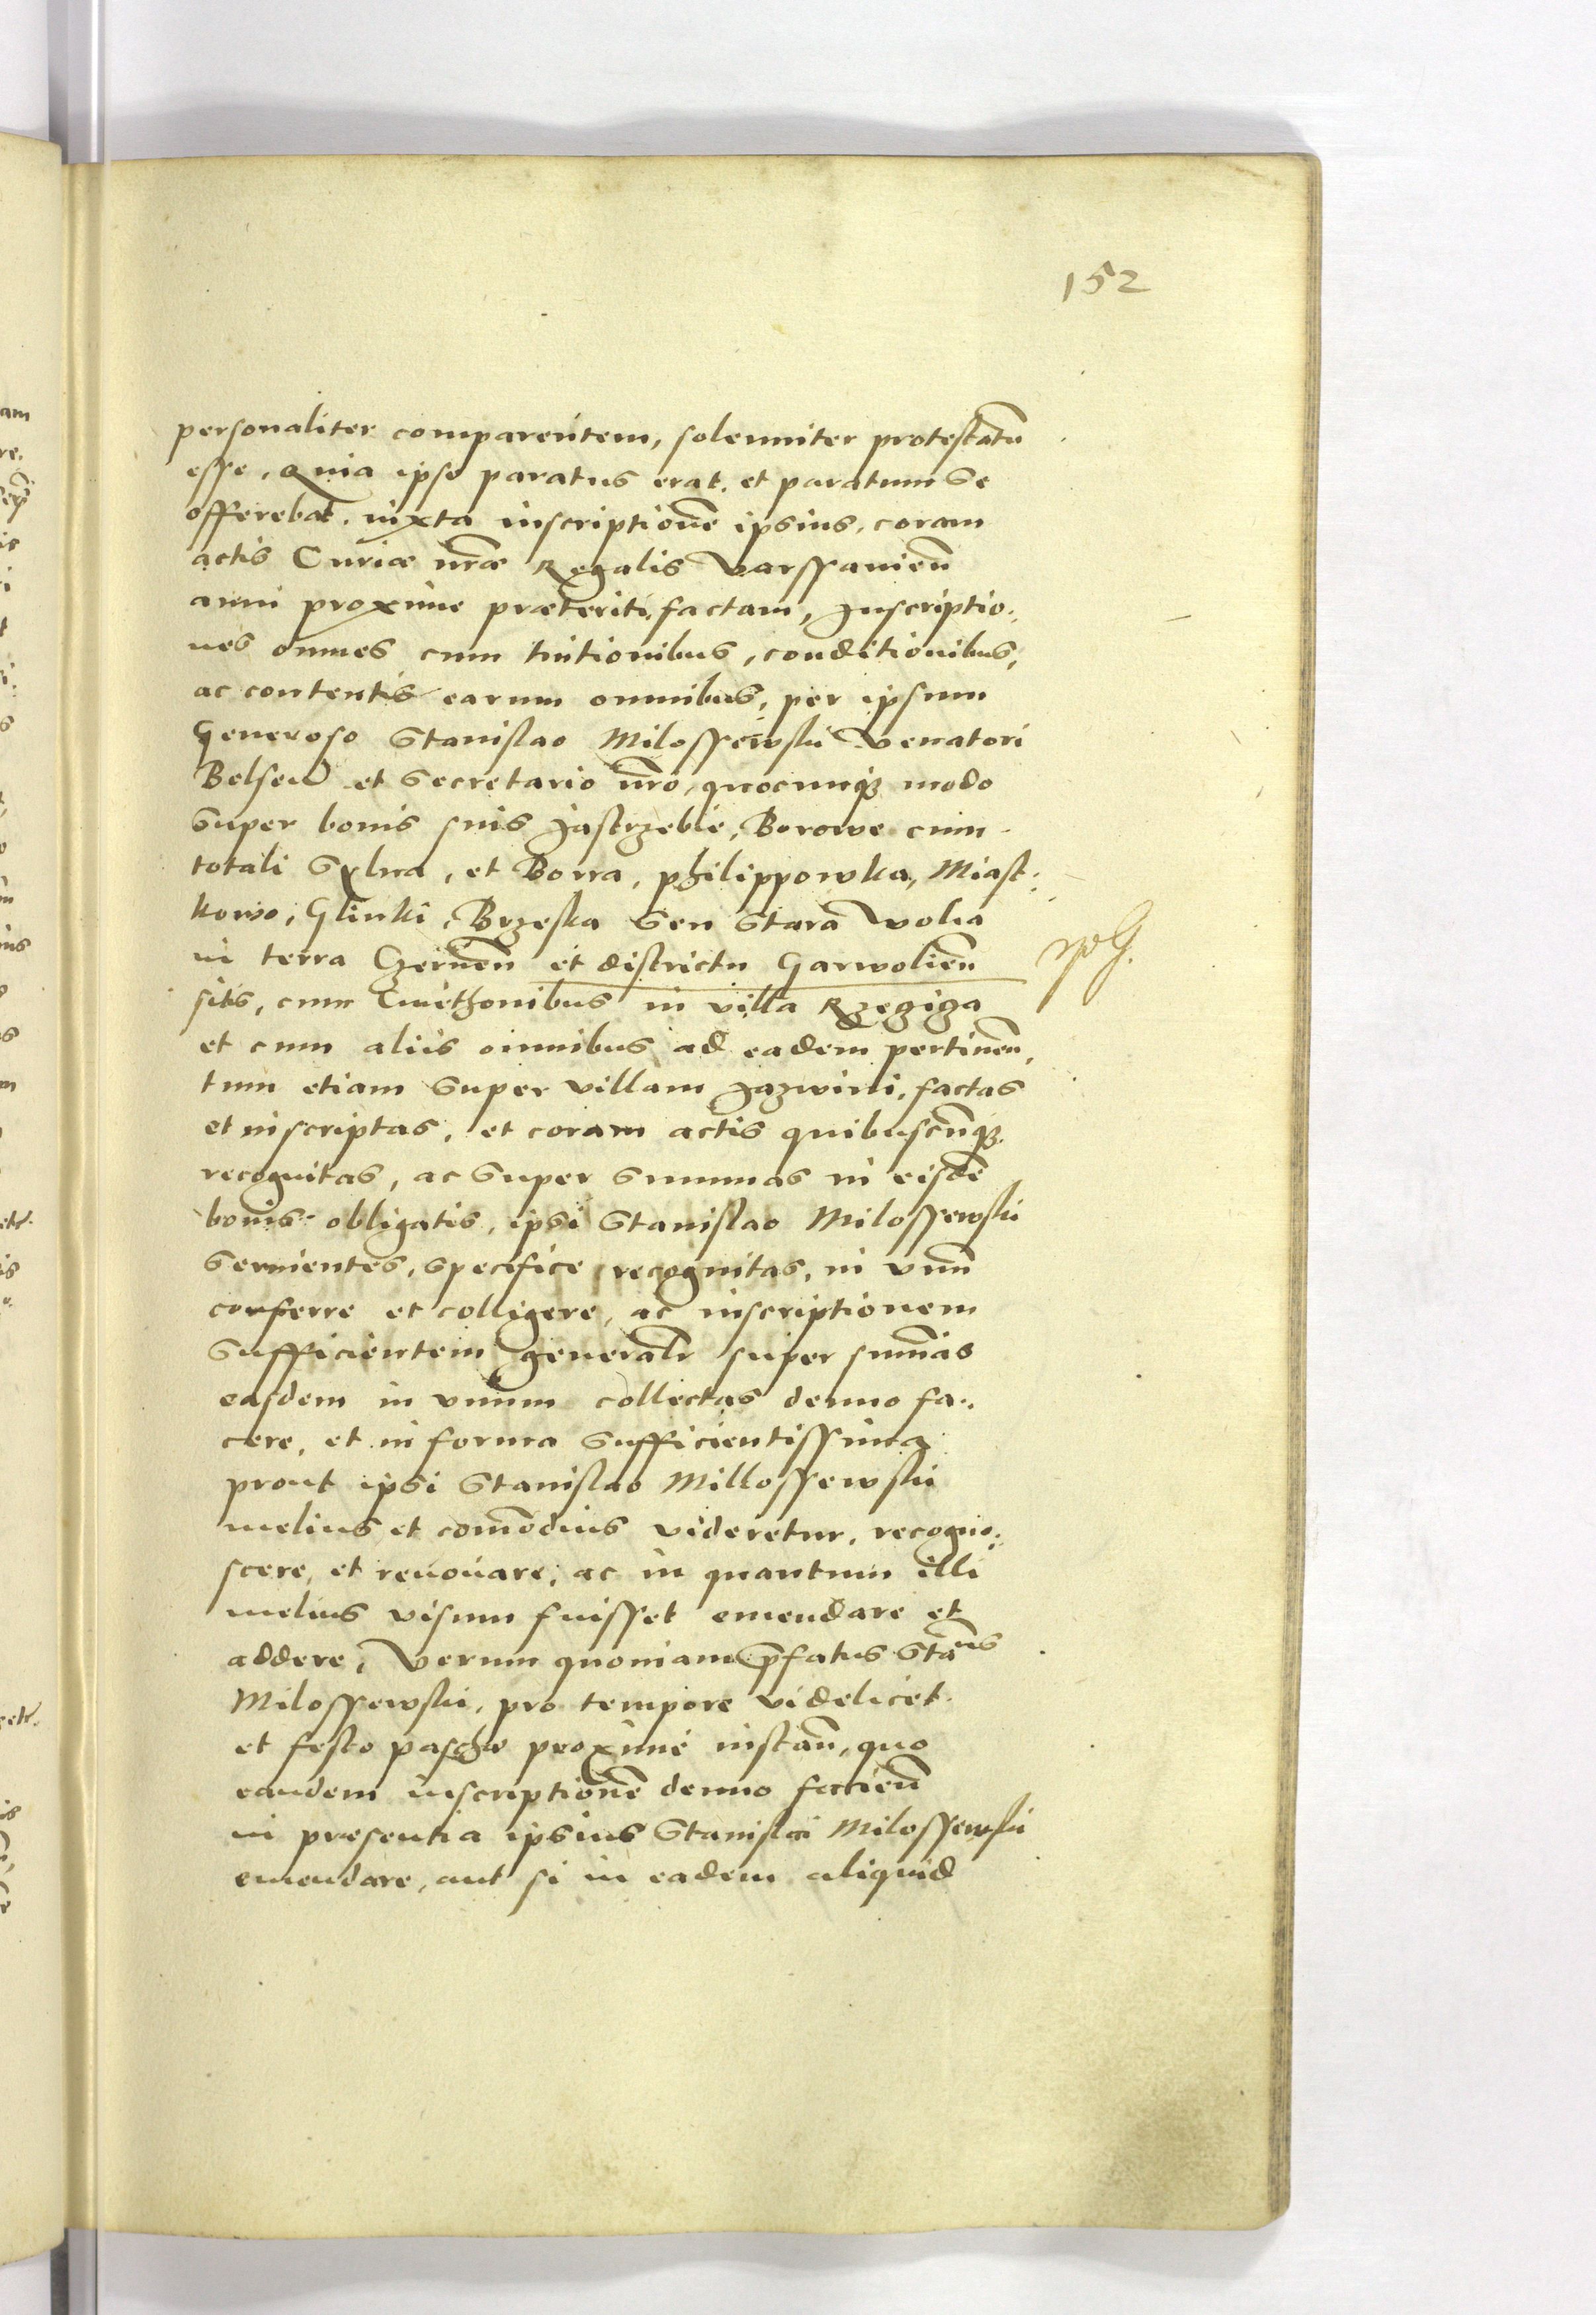 152
personaliter comparentem, solenniter protestatū
esse, Quia ipse paratus erat, et paratum se
offerebat, iuxta inscriptionē ipsius, coram
actis Curiæ nr̄æ Regalis Varssavien̄
anni proxime præteriti, factam, Inscriptio:
nes omnes cum tuitionibus, conditionibus,
ac contentis earum omnibus, per ipsum
Generoso Stanislao Milossewski Venatori
Belsen̄ et Secretario nr̄o, quocunqȝ modo
super bonis suis Jastrzebie, Borowe cum
totali Sylva, et Borra, Philippowka, Miast:
kowo, Glinki, Brzeska seu Stara Wolia
in terra Czernen̄ et districtu Garwolien̄
sitis, cum Cmethonibus in villa Rzegiga
et cum aliis omnibus ad eadem pertinen̄,
tum etiam super villam Jazwini, factas
et inscriptas, et coram actis quibuscūnqȝ
recognitas, ac super summas in eisdē
bonis obligatis, ipsi Stanislao Milossewski
servientes, specifice recognitas, in vnū
conferre et colligere, ac inscriptionem
sufficientem generalr̄ super sum̄as
easdem in vnum collectas denuo fa:
cere, et in forma sufficientissima
prout ipsi Stanislao Millossewski
melius et com̄odius videretur, recogno:
scere, et renovare, ac in quantum illi
melius visum fuisset emendare et
addere, Verum quoniam p̄fatus Stan̄us
Milossewski, pro tempore videlicet
et festo paschæ proxime instan̄, quo
eandem inscriptionē denuo facien̄
in præsentia ipsius Stanislai Milossewski
emendare, aut si in eadem aliquid